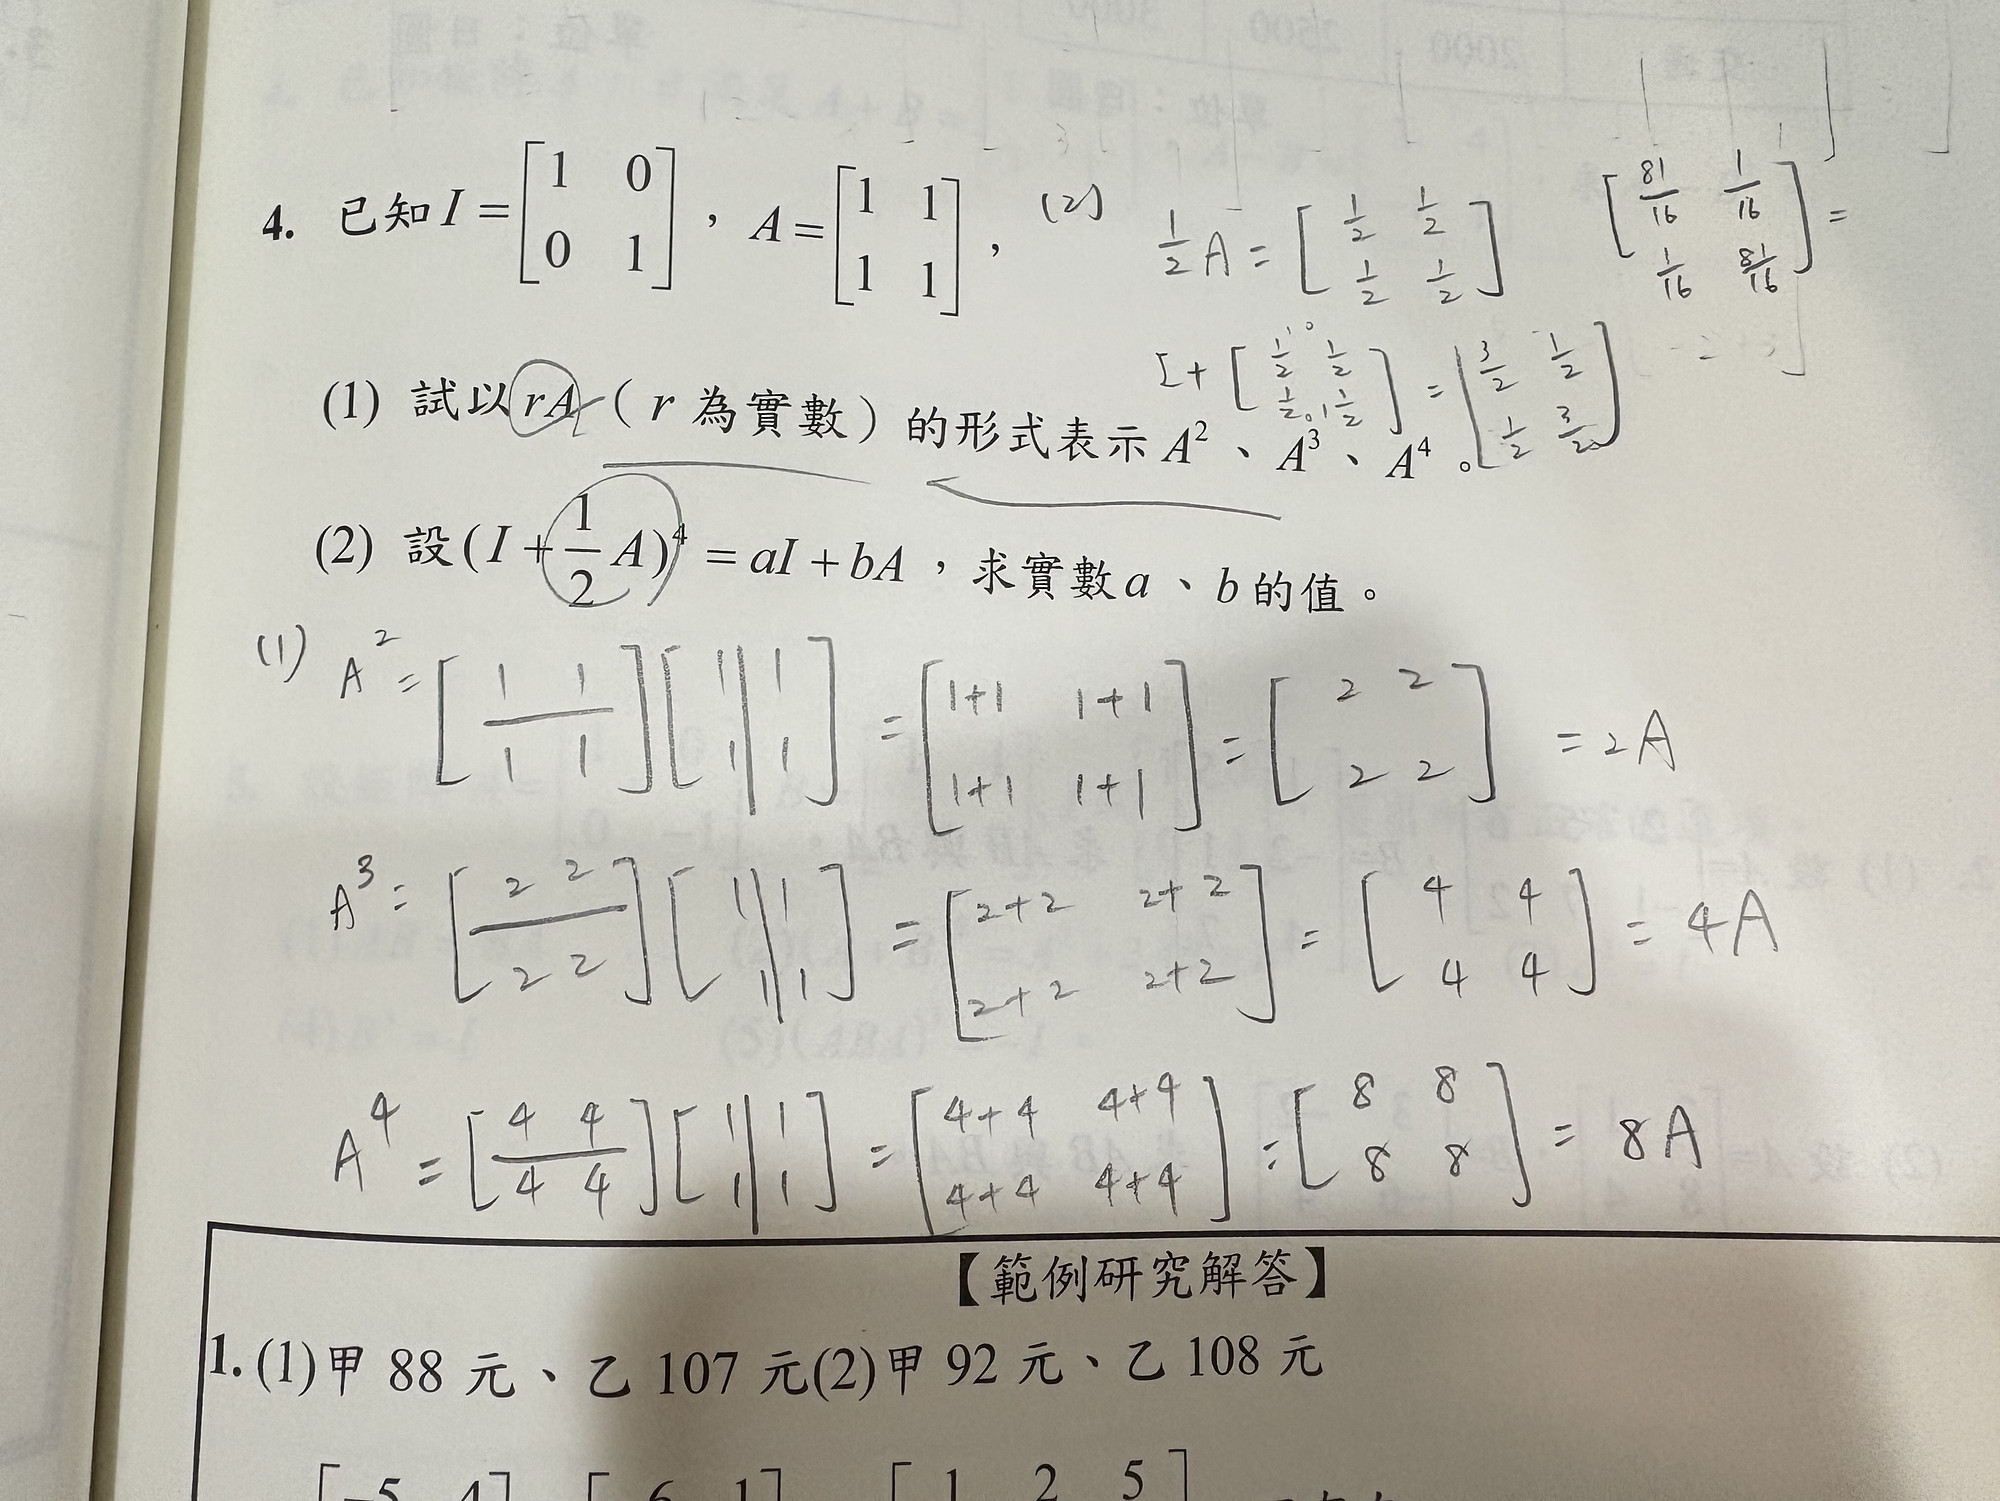 4. 已知 I = [1 0 0 1] , A = [1 1 1 1] ,
(2) 1/2 A = [1/2 1/2 1/2 1/2]
[81/16 1/16 1/16 81/16] =
I + [1/2 1/2 1/2 1/2] = [3/2 1/2 1/2 3/2]
(1) 試以 rA ( r 為實數 ) 的形式表示 A² 、 A³ 、 A⁴ 。
(2) 設 (I + 1/2 A)⁴ = aI + bA , 求實數 a 、 b 的值。
(1) A² = [1 1 1 1] [1 1 1 1] = [1+1 1+1 1+1 1+1] = [2 2 2 2] = 2A
A³ = [2 2 2 2] [1 1 1 1] = [2+2 2+2 2+2 2+2] = [4 4 4 4] = 4A
A⁴ = [4 4 4 4] [1 1 1 1] = [4+4 4+4 4+4 4+4] = [8 8 8 8] = 8A
【範例研究解答】
1. (1)甲 88 元、乙 107 元(2)甲 92 元、乙 108 元
[-5 4] [6 1] [1 2 5]